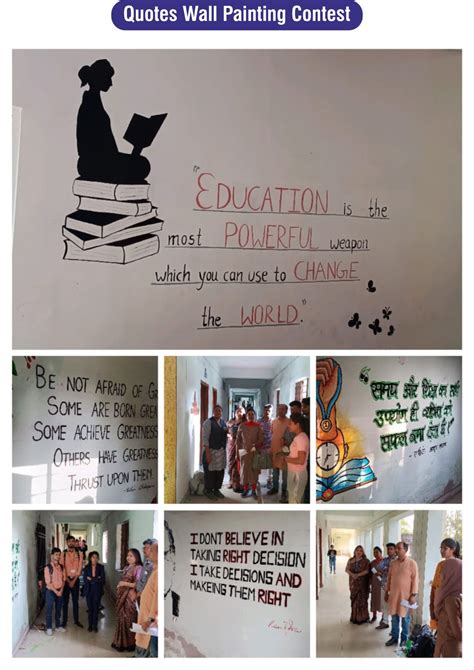 Quotes Wall Painting Contest
"EDUCATION is the
most POWERFUL weapon
which you can use to CHANGE
the WORLD."
BE NOT AFRAID OF
SOME ARE BORN GREA
SOME ACHIEVE GREATNESS
OTHERS HAVE GREATNESS
THRUST UPON THEM
"समय और शिक्षा का सही
उपयोग ही व्यक्ति को
सफल बना देता है"
I DONT BELIEVE IN
TAKING RIGHT DECISION
I TAKE DECISIONS AND
MAKEING THEM RIGHT